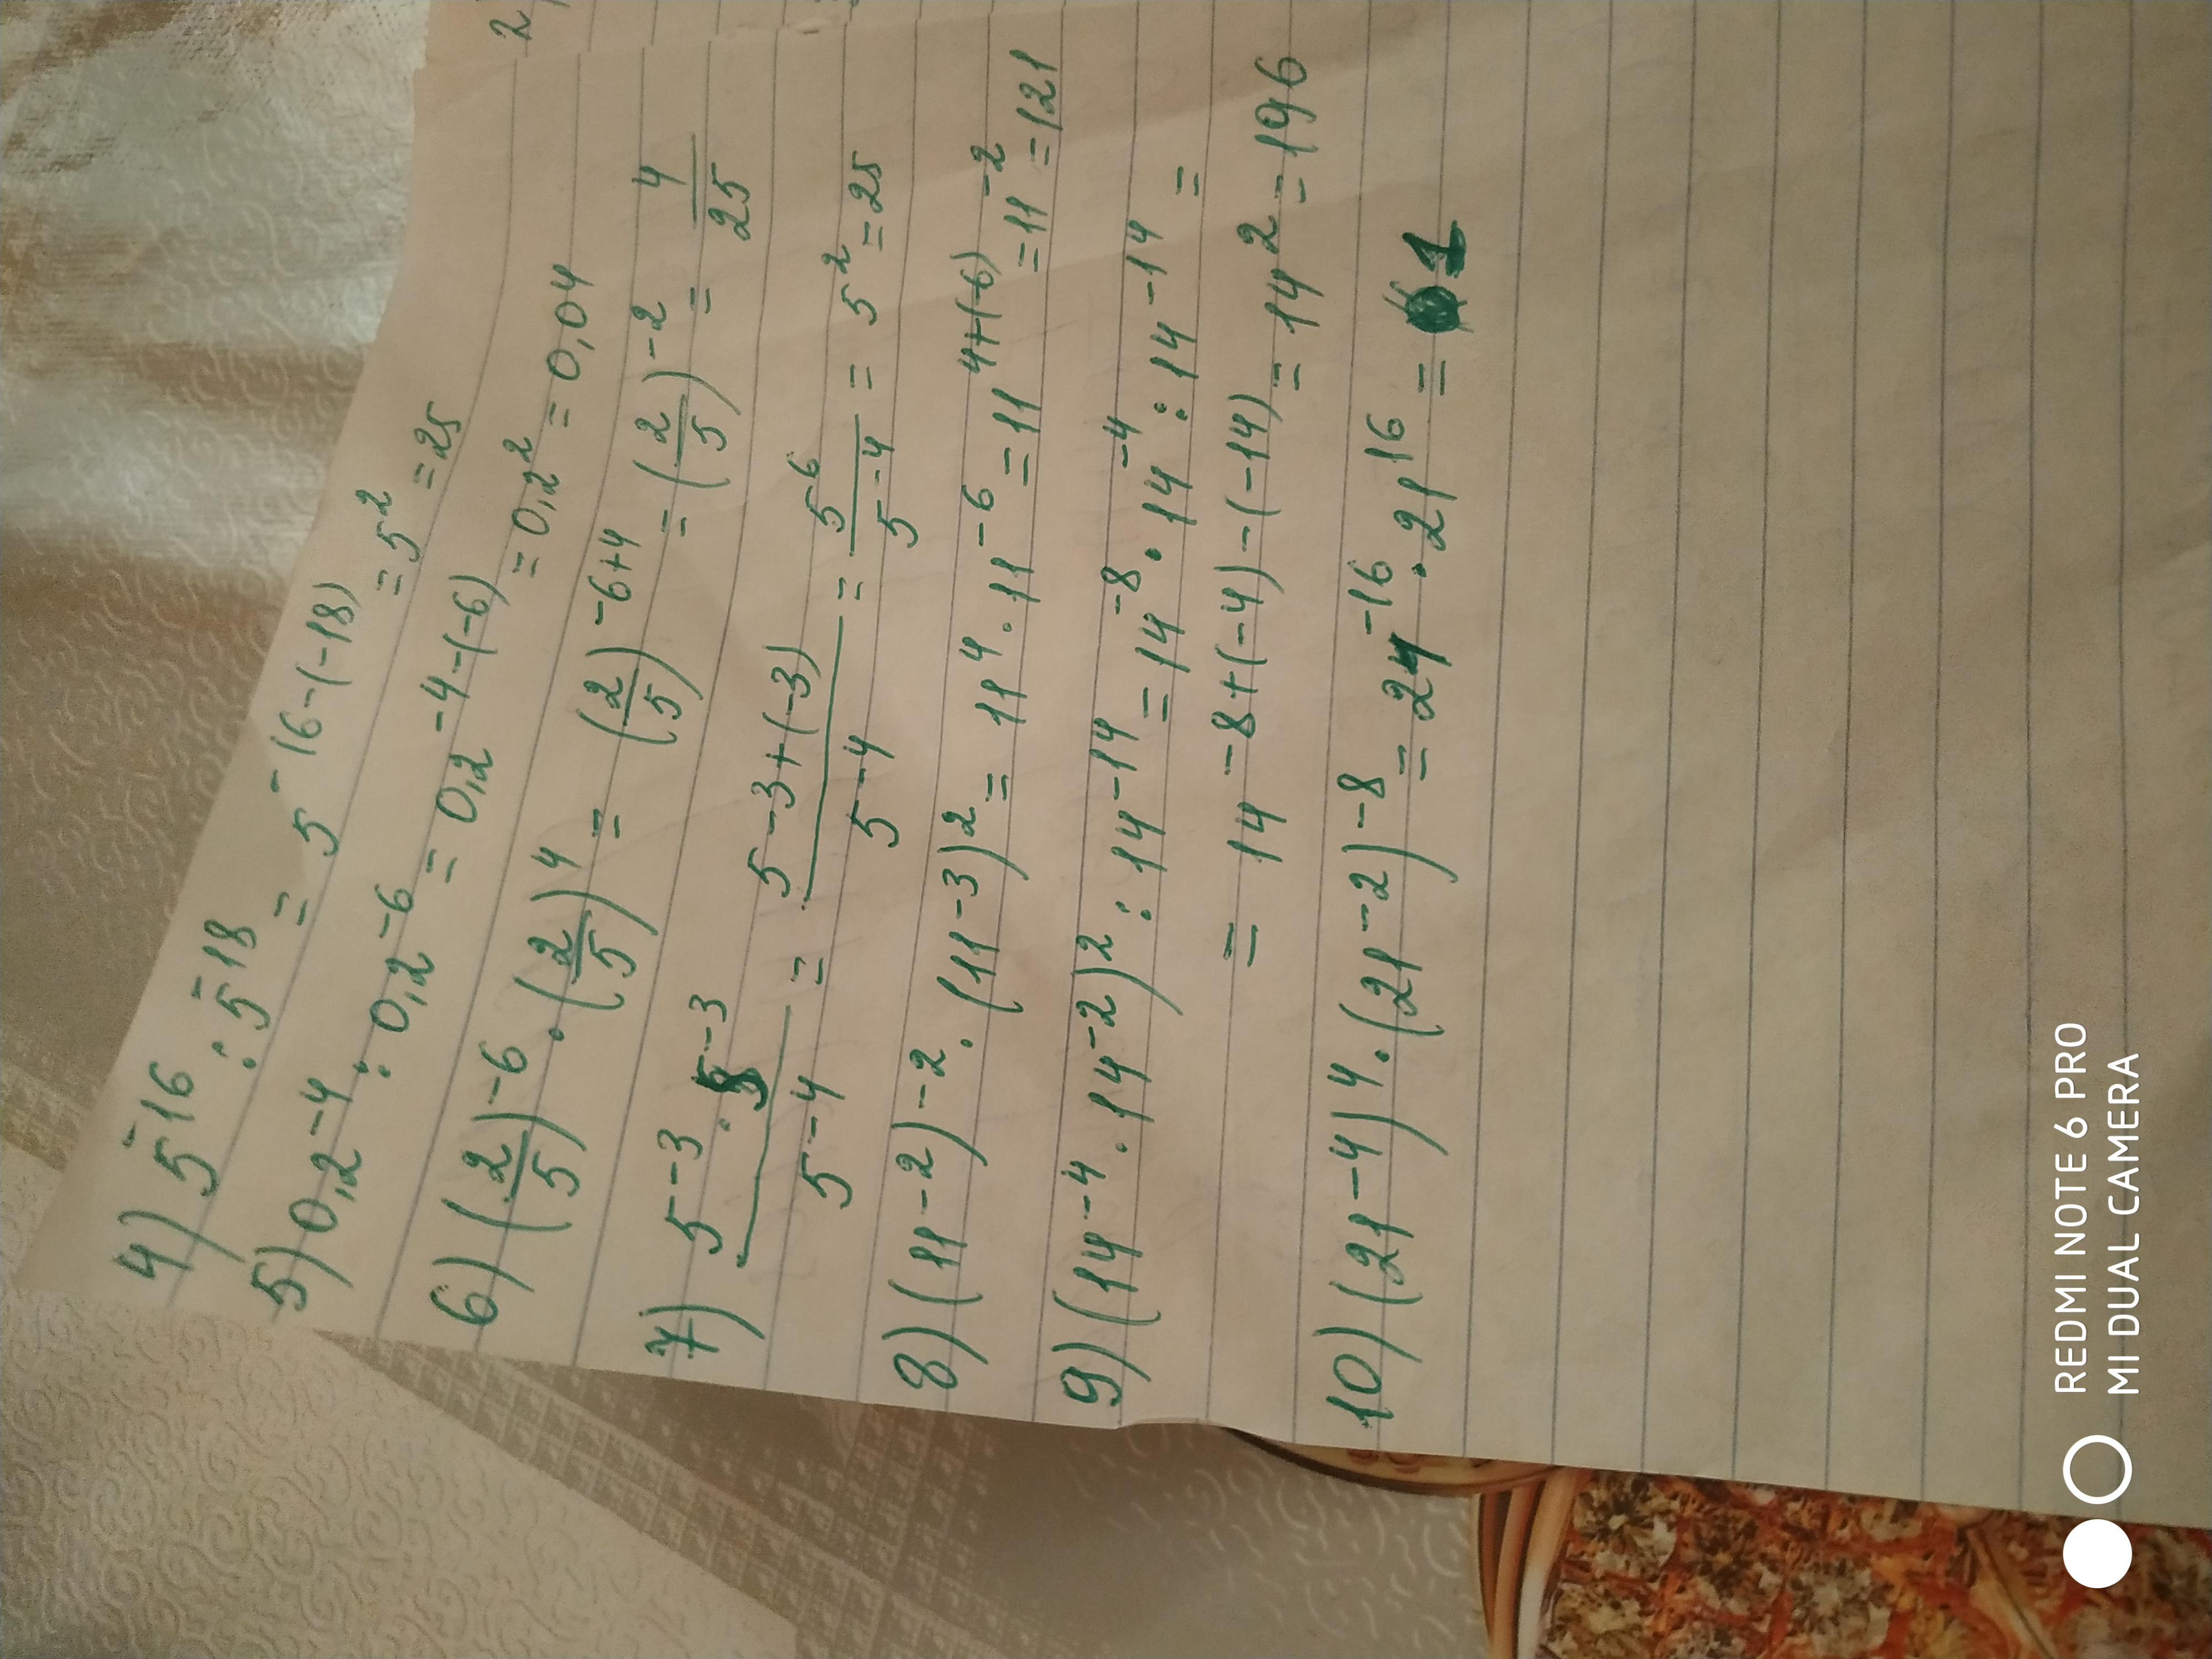 2)
4) 5⁻¹⁶ : 5⁻¹⁸ = 5⁻¹⁶⁻⁽⁻¹⁸⁾ = 5² = 25
5) 0,2⁻⁴ : 0,2⁻⁶ = 0,2⁻⁴⁻⁽⁻⁶⁾ = 0,2² = 0,04
6) (2/5)⁻⁶ · (2/5)⁴ = (2/5)⁻⁶⁺⁴ = (2/5)⁻² = 4/25
7) 5⁻³ · 5⁻³ / 5⁻⁴ = 5⁻³⁺⁽⁻³⁾ / 5⁻⁴ = 5⁶ / 5⁻⁴ = 5² = 25
8) (11⁻²)⁻² · (11⁻³)² = 11⁴ · 11⁻⁶ = 11⁴⁺⁽⁻⁶⁾ = 11⁻² = 121
9) (14⁻⁴ · 14⁻²)² : 14⁻¹⁴ = 14⁻⁸ · 14⁻⁴ : 14⁻¹⁴ =
= 14⁻⁸⁺⁽⁻⁴⁾⁻⁽⁻¹⁴⁾ = 14² = 196
10) (21⁻⁴)⁴ · (21⁻²)⁻⁸ = 24⁻¹⁶ · 21¹⁶ = 1
REDMI NOTE 6 PRO
MI DUAL CAMERA